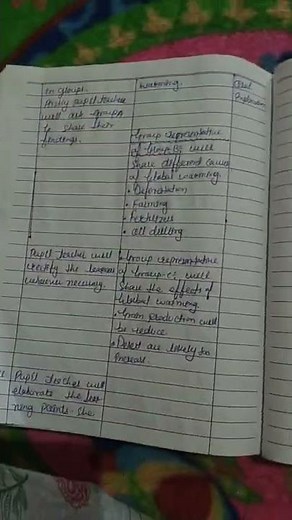 in groups.
Firstly pupil teacher
will ask groups
to share their
findings.
warming.
Oral
Explanation
Group representative
of Group B's will
share different causes
of Global warming
• Deforestation
• Farming
• Fertilizers
• Oil drilling
Pupil teacher will
rectify the learners
wherever necessary.
• Group representative
of Group C's will
Share the effects of
Global warming
• Grain production will
be reduce
• Desert are likely to
increase.
Pupil teacher will
elaborate the lear
ning points. She